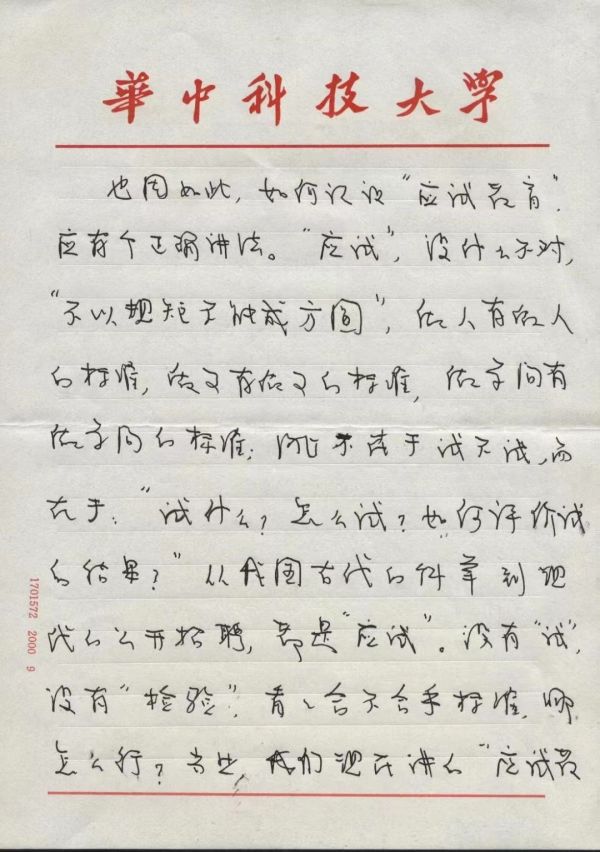 華中科技大学
也因如此，如何认识“应试教育”，
应有个正确讲法。“应试”，没什么不对，
“不以规矩不能成方圆”，做人有做人
的标准，做文有做文的标准，做学问有
做学问的标准；问题不在于试不试，而
在于：“试什么？怎么试？如何评价试
的结果？”从我国古代的科举到现
代的公开招聘，都是“应试”。没有“试”，
没有“检验”，看看合不合乎标准，哪
怎么行？当然，我们现在讲的“应试教
1701572 2000 9